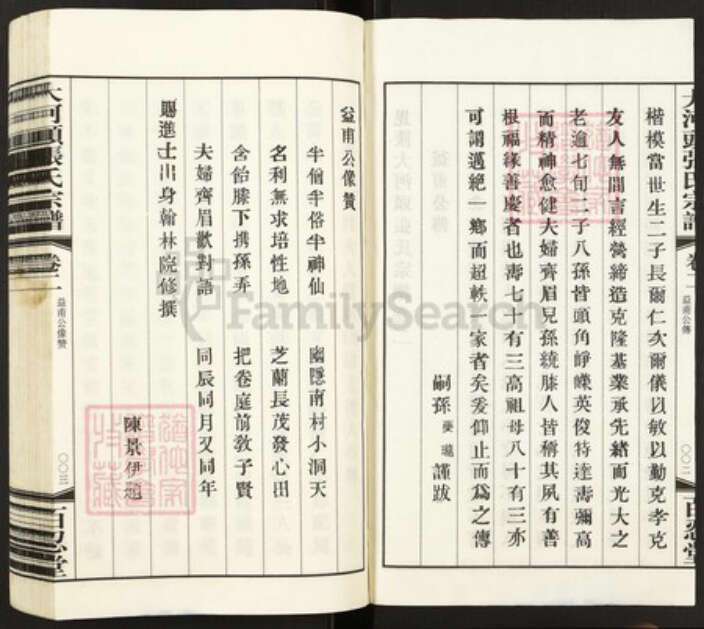 大河頭張氏宗譜
卷二
益甫公傳
〇〇二
百忍堂
楷模當世生二子長爾仁次爾儀以敏以勤克孝克
友人無間言經營締造克隆基業承先緒而光大之
老逾七旬二子八孫皆頭角崢嶸英俊特達壽彌高
而精神愈健夫婦齊眉兒孫繞膝人皆稱其夙有善
根福緣善慶者也壽七十有三高祖母八十有三亦
可謂邁絶一鄉而超軼一家者矣爰仰止而爲之傳
嗣孫 謹跋
益甫公像贊
半儒半俗半神仙 幽隱南村小洞天
名利無求培性地 芝蘭長茂發心田
含飴膝下携孫弄 把卷庭前敎子賢
夫婦齊眉歡對語 同辰同月又同年
賜進士出身翰林院修撰
陳景伊題
大河頭張氏宗譜
卷二
益甫公像贊
〇〇三
百忍堂
FamilySearch